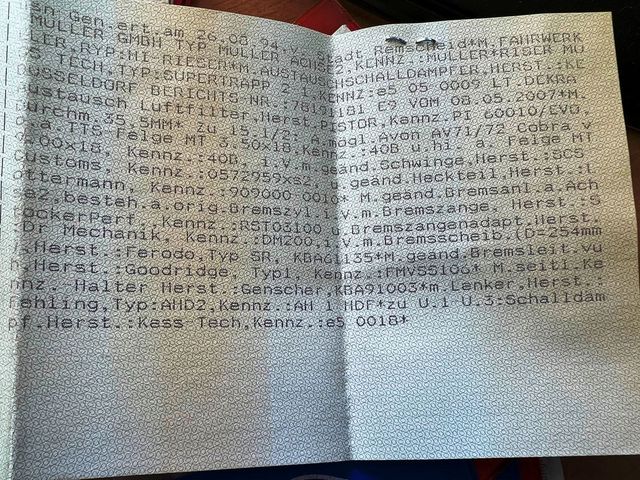 sn.Gen.ert.am 26.08.94.v.Stadt Remscheid*M.FAHRWERK
MÜLLER GMBH TYP MÜLLER ACHSE2,KENNZ.:MÜLLER*RISER MÜ
LLER,RYP:MI RIESER*M.AUSTAUSCHSCHALLDÄMPFER,HERST.:KE
SS TECH,TYP:SUPERTRAPP 2 1,KENNZ:e5 05 0009 LT DEKRA
DÜSSELDORF BERICHTS NR.:78191181 E9 VOM 08.05.2007*M.
Austausch Luftfilter,Herst.PISTOR,Kennz.PI 60010/EVO,
Durchm.35,5MM* zu 15.1/2: A.mögl.Avon AV71/72 Cobra v
o.a.TTS Felge MT 3.50x18,Kennz.:40B u.hi. a. Felge MT
3.00x18, Kennz.:40B, i.V.m.geänd.Schwinge,Herst.:SCS
Customs, Kennz.:0572959xs2, u.geänd.Heckteil,Herst.:L
ottermann, Kennz.:909000 0010* M.geänd.Bremsanl.a.Ach
se2,besteh.a.orig.Bremszyl.i.V.m.Bremszange, Herst.:S
ockerPerf.,Kennz.:RST03100 u.Bremszangenadapt.Herst.
:Dr Mechanik, Kennz.:DM200,i.V.m.Bremsscheib.(D=254mm
),Herst.:Ferodo,Typ SR, KBA61135*M.geänd.Bremsleit.vu
h,Herst.:Goodridge, Typ1, Kennz.:FMVSS106* M.seitl.Ke
nnz. Halter Herst.:Genscher,KBA91003*m.Lenker,Herst.:
Fehling,Typ:AHD2,Kennz.:AH 1 HDF*zu U.1 U.3:Schalldäm
pf.Herst.:Kess Tech,Kennz.:e5 0018*